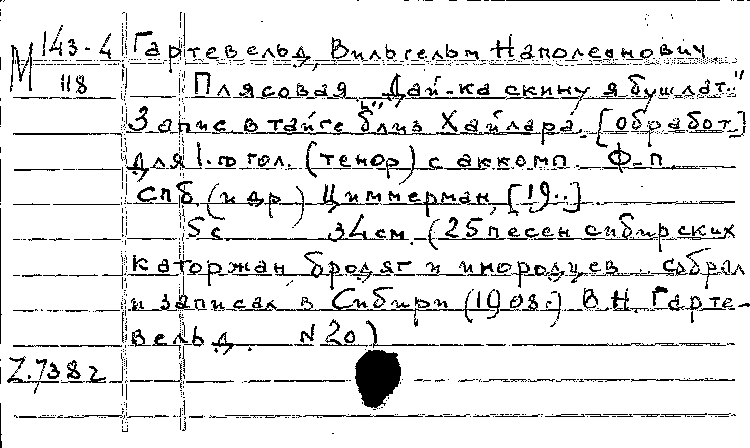 М 143-4 Гартевельд, Вильгельм Наполеонович.
118 Плясовая "Дай-ка скину я бушлат.."
Запис в тайге близ Хайлара. [обработ.]
для 1-го гол. (тенор) с аккомп. Ф-п.
СПб. (и др.) Циммерман, [19..]
5 с. 34 см. (25 песен сибирских
каторжан, бродяг и инородцев.. собрал
и записал в Сибири (1908.) В. Н. Гарте-
вельд. N 20)
Z.738г